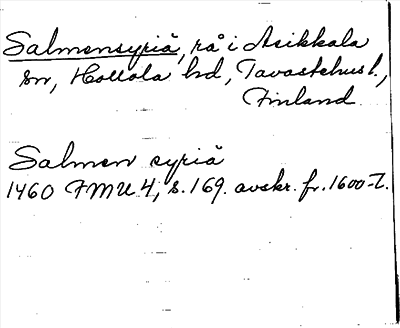 Salmensyriä, rå i Asikkala
sn, Hollola hd, Tavastehus l.,
Finland
Salmen syriä
1460 FMU 4, s. 169. avskr. fr. 1600-t.